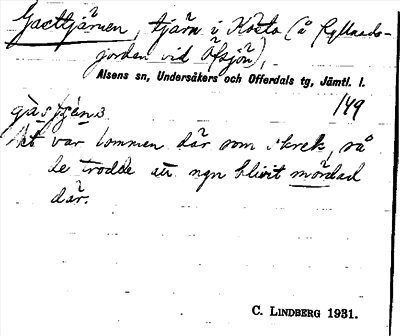 Gasttjärnen, tjärn i Kösta (å Kyllands-
jorden vid Öfsjön),
Alsens sn, Undersåkers och Offerdals tg, Jämtl. l.
149
var lommen där som skrek, så
de trodde att ngn blivit mördad
där.
C. LINDBERG 1931.